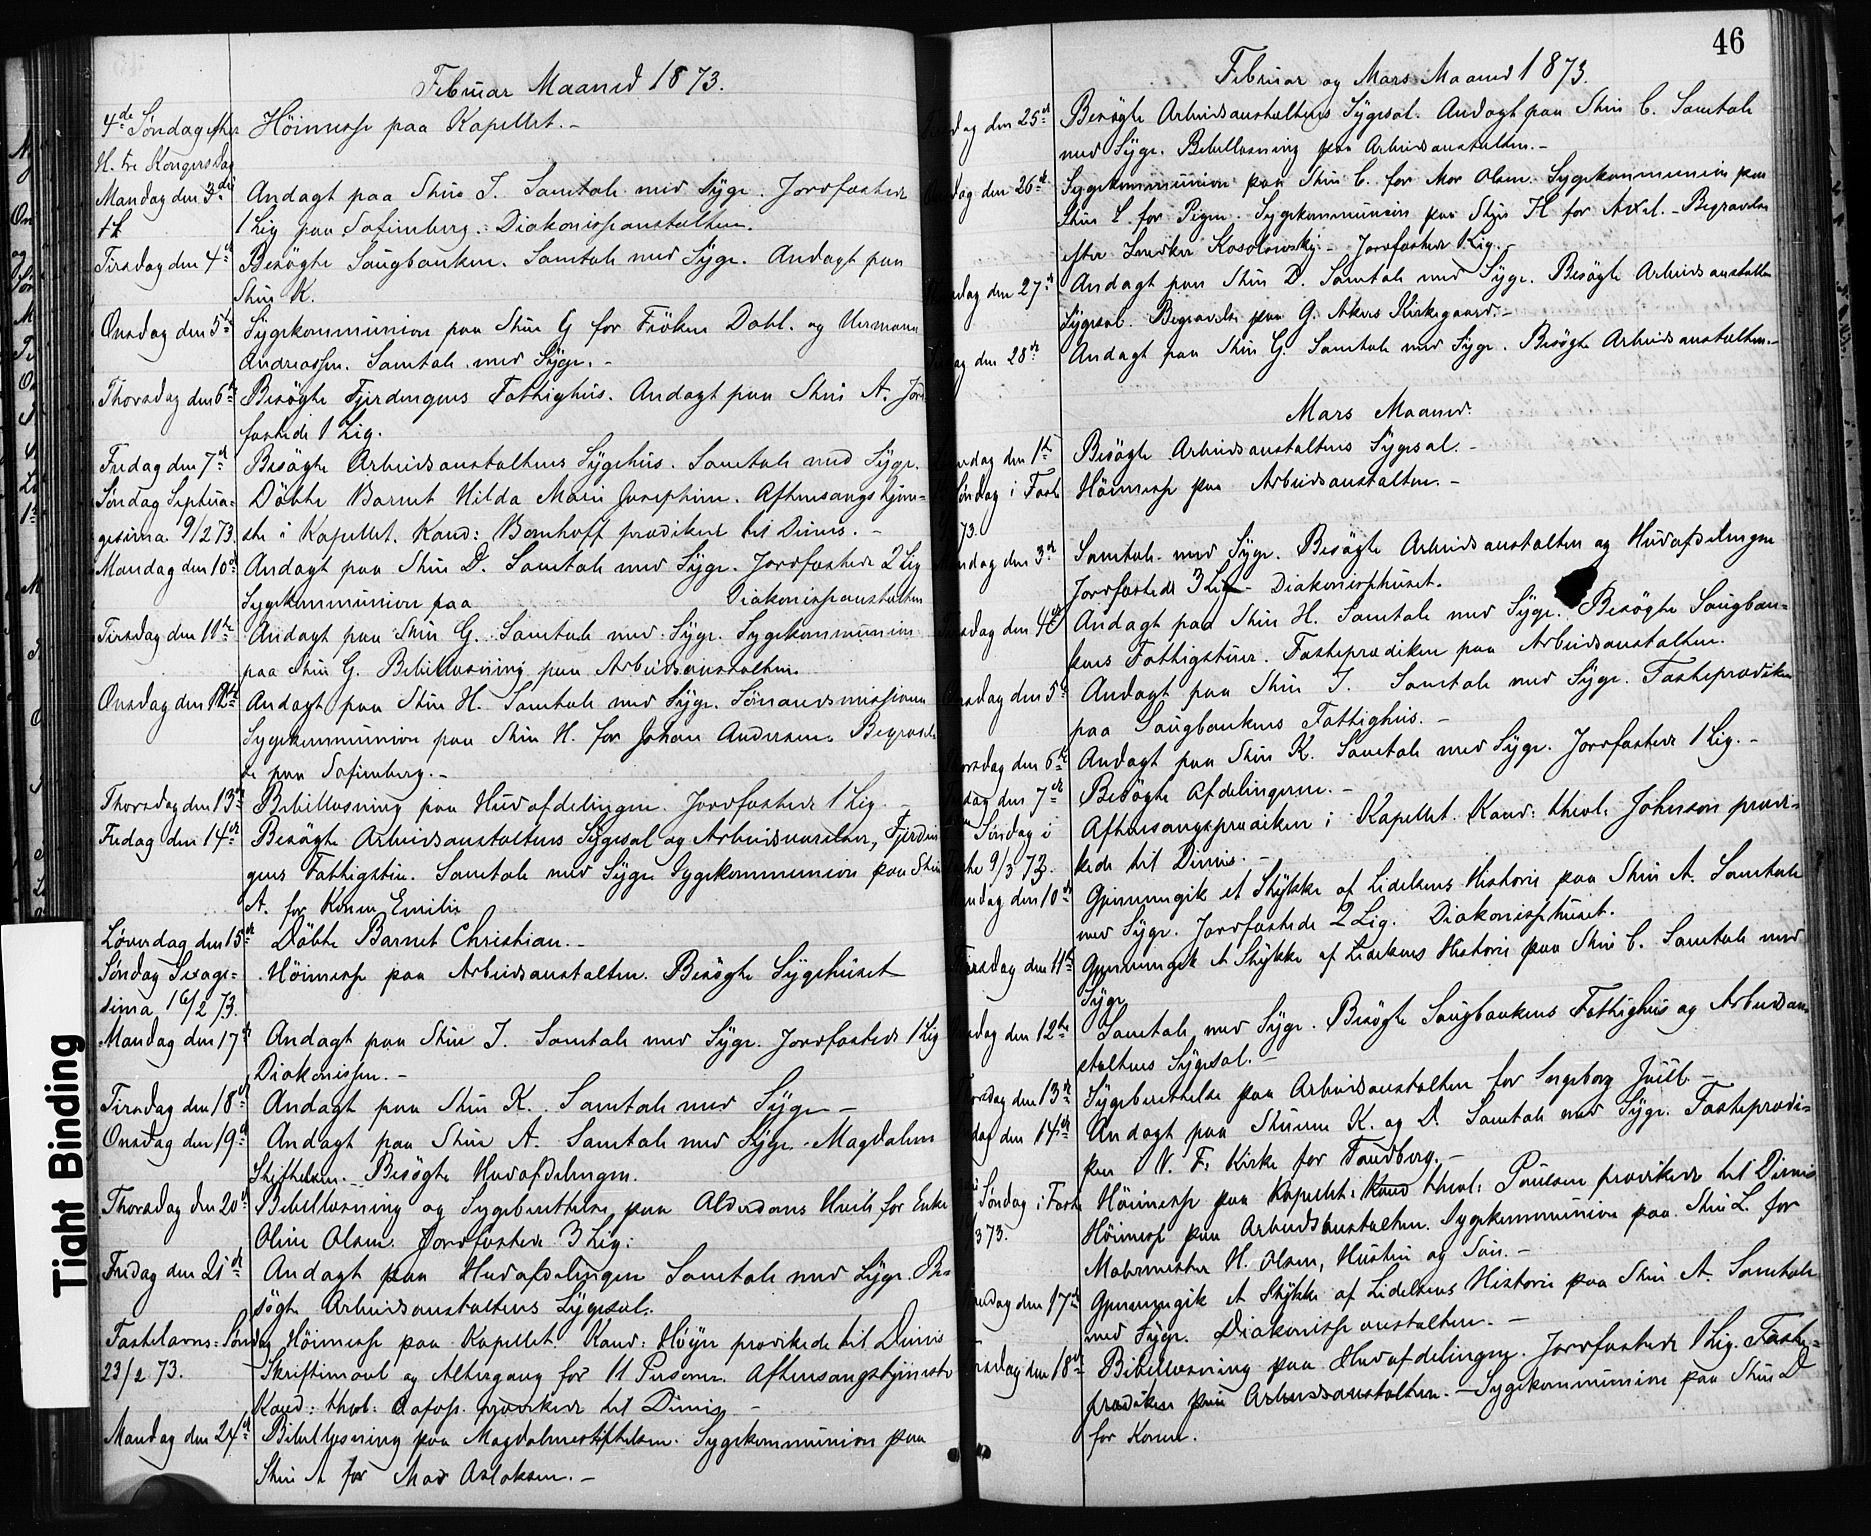 Februar Maaned 1873.
4de Søndag efter Höimesse paa Kapellet. –
H. tre Kongers Dag
Mandag den 3die Andagt paa Stue I. Samtale med Syge. Jordfæstede
1 Lig paa Sofienberg. Diakonisseanstalten.
Tirsdag den 4de Besögte Saugbanken. Samtale med Syge. Andagt paa
Stue K.
Onsdag den 5te Sygekommunion paa Stue G for Fröken Dahl. og Herman
Andreassen. Samtale med Syge. –
Thorsdag den 6te Besögte Fjerdingens Fattighus. Andagt paa Stue A. Jord
fæstede 1 Lig.
Fredag den 7de Besögte Arbeidsanstaltens Sygehus. Samtale med Syge.
Søndag Septua- Döbte Barnet Hilda Marie Josephine. Aftensangstjene-
gesima 9/2 73. ste i Kapellet. Kand: Bomhoff prædikede til Dimis. –
Mandag den 10de Andagt paa Stue D. Samtale med Syge. Jordfæstede 2 Lig
Sygekommunion paa Diakonisseanstalten
Tirsdag den 11te Andagt paa Stue G. Samtale med Syge. Sygekommunion
paa Stue G. Bibellæsning paa Arbeidsanstalten.
Onsdag den 12te Andagt paa Stue H. Samtale med Syge. Sömandsmissionen
Sygekommunion paa Stue H. for Johan Andersen. Begravel
se paa Sofienberg. –
Thorsdag den 13de Bibellæsning paa Hudafdelingen. Jordfæstede 1 Lig. –
Fredag den 14de Besögte Arbeidsanstaltens Sygesal og Arbeidsværelser, Fjerdin
gens Fattigstue. Samtale med Syge Sygekommunion paa Stue
A. for Konen Emilie
Løverdag den 15de Döbte Barnet Christian. –
Søndag Sexage- Höimesse paa Arbeidsanstalten. Besögte Sygehuset
sima 16/2 73.
Mandag den 17de Andagt paa Stue I. Samtale med Syge. Jordfæstede 1 Lig
Diakonissen. –
Tirsdag den 18de Andagt paa Stue K. Samtale med Syge –
Onsdag den 19de Andagt paa Stue A. Samtale med Syge. Magdalene
Stiftelsen. Besögte Hudafdelingen.
Thorsdag den 20de Bibellæsning og Sygeberettelse paa Alderdoms Hvile for Enke
Oline Olsen. Jordfæstede 3 Lig.
Fredag den 21de Andagt paa Hudafdelingen Samtale med Syge. Be-
sögte Arbeidsanstaltens Sygesal.
Fastelavns-Søndag Höimesse paa Kapellet. Kand: Höye prædikede til Dimis
23/2 73. Skriftemaal og Altergang for 11 Personer. Aftensangstjeneste
Kand: theol: prædikede til Dimis –
Mandag den 24de Bibellæsning paa Magdalenestiftelsen. Sygekommunion paa
Stue A for Mad Aslaksen. –
46
Februar og Mars Maaned 1873.
dag den 25de Besögte Arbeidsanstaltens Sygesal. Andagt paa Stue C. Samtale
med Syge. Bibellæsning paa Arbeidsanstalten. –
dag den 26de Sygekommunion paa Stue C. for Mor Olsen. Sygekommunion paa
Stue L for Pigen. Sygekommunion paa Stue H for Axel. – Begravelse
efter Snedker Kosolowsky. – Jordfæstede 1 Lig. –
dag den 27de Andagt paa Stue D. Samtale med Syge. Besögte Arbeidsanstalten
Sygesal. Begravelse paa G. Akers Kirkegaard. –
dag den 28de Andagt paa Stue G. Samtale med Syge. Besögte Arbeidsanstalten. –
Mars Maaned.
dag den 1ste Besögte Arbeidsanstaltens Sygesal. –
Søndag i Faste Höimesse paa Arbeidsanstalten. –
73.
Mandag den 3de Samtale med Syge. Besögte Arbeidsanstalten og Hudafdelingen
Jordfæstede 3 Lig – Diakonissehuset.
dag den 4de Andagt paa Stue H. Samtale med Syge. Besögte Saugban-
kens Fattigstuer. Fasteprædiken paa Arbeidsanstalten.
dag den 5te Andagt paa Stue I. Samtale med Syge. Fasteprædiken
paa Saugbankens Fattighus. –
dag den 6te Andagt paa Stue K. Samtale med Syge. Jordfæstede 1 Lig. –
dag den 7de Besögte Afdelingerne. –
Søndag i Aftensangsprædiken i Kapellet. Kand: theol: Johnsson prædi-
Faste 9/3 73. kede til Dimis. –
Mandag den 10de Gjennemgik et Stykke af Lidelsens Historie paa Stue A. Samtale
med Syge. Jordfæstede 2 Lig. Diakonissehuset.
Tirsdag den 11te Gjennemgik et Stykke af Lidelsens Historie paa Stue C. Samtale med
Syge
dag den 12te Samtale med Syge. Besögte Saugbankens Fattighus og Arbeidsan
staltens Sygesal. –
dag den 13de Sygeberettelse paa Arbeidsanstalten for Ingeborg Juell. –
dag den 14de Andagt paa Stuerne K. og D. Samtale med Syge. Fasteprædi-
ken V. F. Kirke for Tandberg. –
Søndag i Faste Höimesse paa Kapellet. Kand theol: Poulsen prædikede til Dimis
3 73. Höimesse paa Arbeidsanstalten. Sygekommunion paa Stue L. for
Malermester H. Olsen, Hustru og Sön. –
Mandag den 17de Gjennemgik et Stykke af Lidelsens Historie paa Stue A. Samtale
med Syge. Diakonisseanstalten. –
Tirsdag den 18de Bibellæsning paa Hudafdelingen. Jordfæstede 1 Lig. Faste-
prædiken paa Arbeidsanstalten. – Sygekommunion paa Stue D
for Konen.
Tight Binding